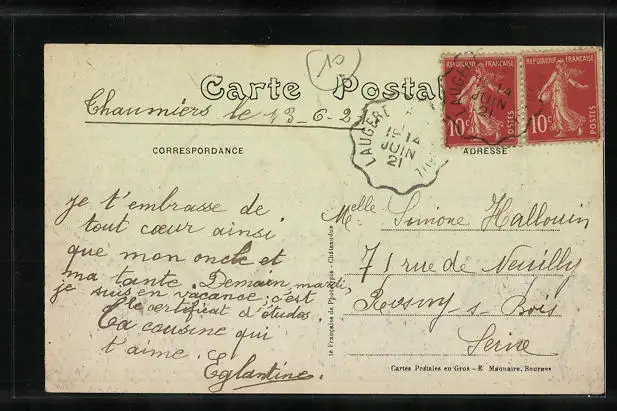 10
Carte Postale
REPUBLIQUE FRANÇAISE
10c POSTES
REPUBLIQUE FRANÇAISE
10c POSTES
Chaumiers le 13-6-21
LAUGERE
14
JUIN
21
14
JUIN
21
CORRESPONDANCE
ADRESSE
je t'embrasse de
tout cœur ainsi
que mon oncle et
ma tante. Demain mardi,
je suis en vacance, c'est
le certificat d'études.
Ta cousine qui
t'aime.
Eglantine.
Melle Simone Hallouin
71 rue de Neuilly
Rosny-s-Bois
Seine
Cartes Postales en Gros - E. Maquaire, Bourges